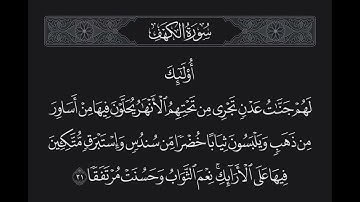 سُورَةُ الْكَهْفِ
أُو۟لَٰٓئِكَ
لَهُمْ جَنَّٰتُ عَدْنٍ تَجْرِى مِن تَحْتِهِمُ ٱلْأَنْهَٰرُ يُحَلَّوْنَ فِيهَا مِنْ أَسَاوِرَ
مِن ذَهَبٍ وَيَلْبَسُونَ ثِيَابًا خُضْرًا مِّن سُندُسٍ وَإِسْتَبْرَقٍ مُّتَّكِـِٔينَ
فِيهَا عَلَى ٱلْأَرَآئِكِ ۚ نِعْمَ ٱلثَّوَابُ وَحَسُنَتْ مُرْتَفَقًا ٣١